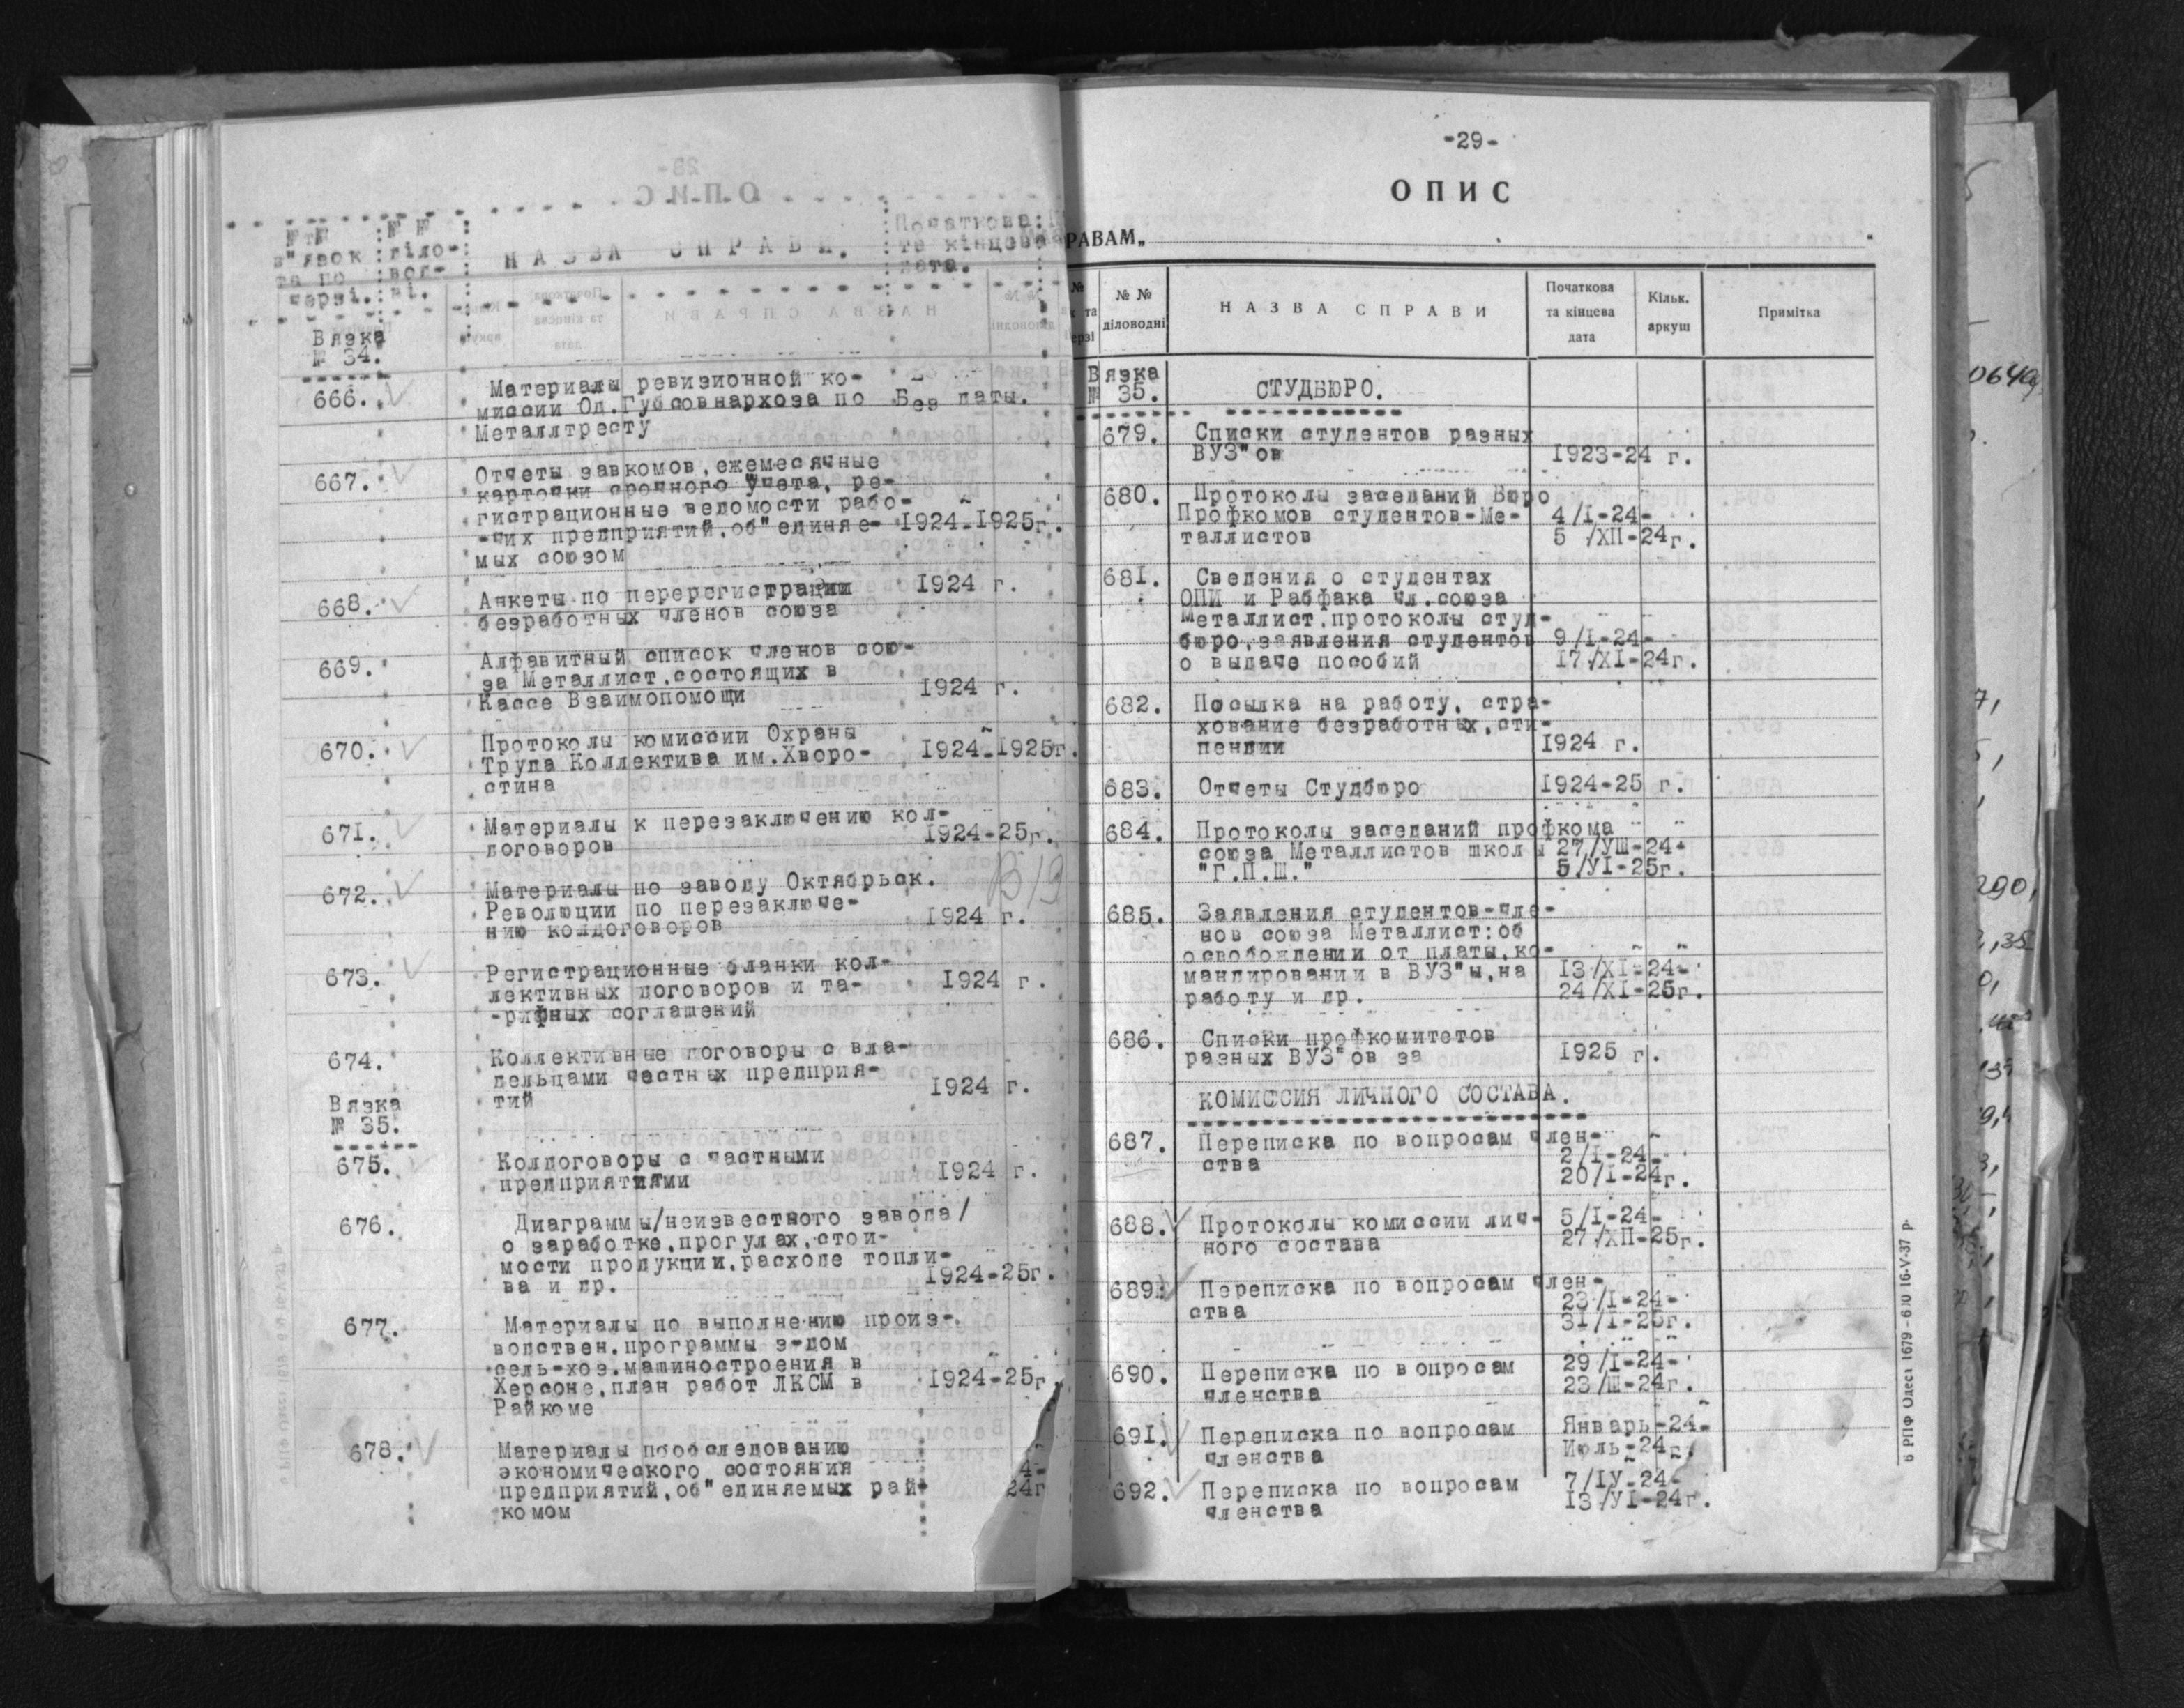 №№
в"язок
та по
черзі.
№ №
діло-
вод-
ні.
НАЗВА СПРАВИ.
Початкова
та кінцева
дата.
Вязка
№ 34.
666. Материалы ревизионной ко-
миссии Од.Губсовнархоза по Без даты.
Металлтресту
667. Отчеты завкомов,ежемесячные
карточки срочного учета, ре-
гистрационные ведомости рабо-
-чих предприятий,об"единяе- 1924-1925г.
мых союзом
668. Анкеты по перерегистрации 1924 г.
безработных членов союза
669. Алфавитный список членов сою-
за Металлист,состоящих в
Кассе Взаимопомощи 1924 г.
670. Протоколы комиссии Охраны
Труда Коллектива им.Хворо- 1924-1925г.
стина
671. Материалы к перезаключению кол-
договоров 1924-25г.
672. Материалы по заводу Октябрьск.
Революции по перезаключе-
нию колдоговоров 1924 г.
673. Регистрационные бланки кол-
лективных договоров и та- 1924 г.
-рифных соглашений
674. Коллективные договоры с вла-
дельцами частных предприя-
тий 1924 г.
Вязка
№ 35.
675. Колдоговоры с частными
предприятиями 1924 г.
676. Диаграммы/неизвестного завода/
о заработке,прогулах,стои-
мости продукции,расходе топли-
ва и др. 1924-25г.
677. Материалы по выполнению произ-
водствен.программы з-дом
сель-хоз.машиностроения в
Херсоне,план работ ЛКСМ в 1924-25г
Райкоме
678. Материалы пообследованию
экономического состояния 4-
предприятий,об"единяемых рай- 24г
комом
-29-
ОПИС
РАВАМ„
№ №
діловодні
НАЗВА СПРАВИ
Початкова
та кінцева
дата
Кільк.
аркуш
Примітка
Вязка
№ 35. СТУДБЮРО.
679. Списки студентов разных
ВУЗ"ов 1923-24 г.
680. Протоколы заседаний Бюро
Профкомов студентов-Ме- 4/I-24-
таллистов 5 /XII-24г.
681. Сведения о студентах
ОПИ и Рабфака чл.союза
Металлист,протоколы студ-
бюро,заявления студентов 9/I-24-
о выдаче пособий 17/XI-24г.
682. Посылка на работу, стра-
хование безработных,сти-
пендии 1924 г.
683. Отчеты Студбюро 1924-25 г.
684. Протоколы заседаний профкома
союза Металлистов школы 27/УШ-24-
"Г.П.Ш." 5/УI-25г.
685. Заявления студентов-чле-
нов союза Металлист:об
освобождении от платы,ко-
мандировании в ВУЗ"ы,на 13/XI-24-
работу и др. 24/XI-25г.
686. Списки профкомитетов
разных ВУЗ"ов за 1925 г.
КОМИССИЯ ЛИЧНОГО СОСТАВА.
687. Переписка по вопросам член-
ства 2/I-24-
20/I-24г.
688. Протоколы комиссии лич- 5/I-24-
ного состава 27/XII-25г.
689. Переписка по вопросам член-
ства 23/I-24-
31/I-25г.
690. Переписка по вопросам 29/I-24-
членства 23/Ш-24г.
691. Переписка по вопросам Январь-24-
членства Июль-24г.
692. Переписка по вопросам 7/IУ-24-
членства 13/УI-24г.